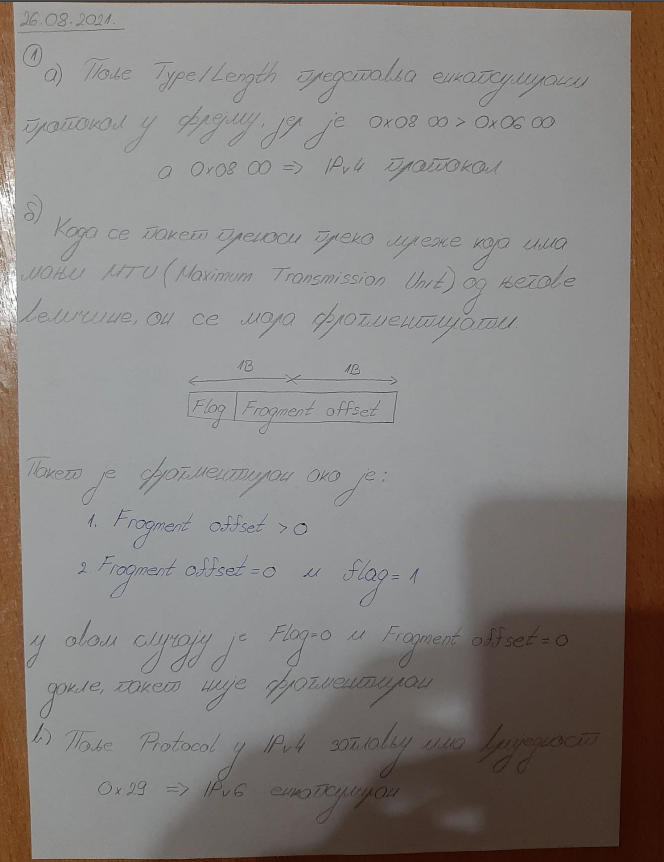 26.08.2021.
1
а) Поље Type/Length представља енкапсулирани
протокол у фрејму, јер је 0x08 00 > 0x06 00
а 0x08 00 => IPv4 протокол
б)
Када се пакет преноси преко мреже која има
мањи MTU (Maximum Transmission Unit) од његове
величине, он се мора фрагментирати.
1B 1B
Flag Fragment offset
Пакет је фрагментиран ако је:
1. Fragment offset > 0
2. Fragment offset = 0 и flag = 1
У овом случају је Flag=0 и Fragment offset = 0
дакле, пакет није фрагментиран
в) Поље Protocol у IPv4 заглављу има вриједност
0x29 => IPv6 енкапсулиран